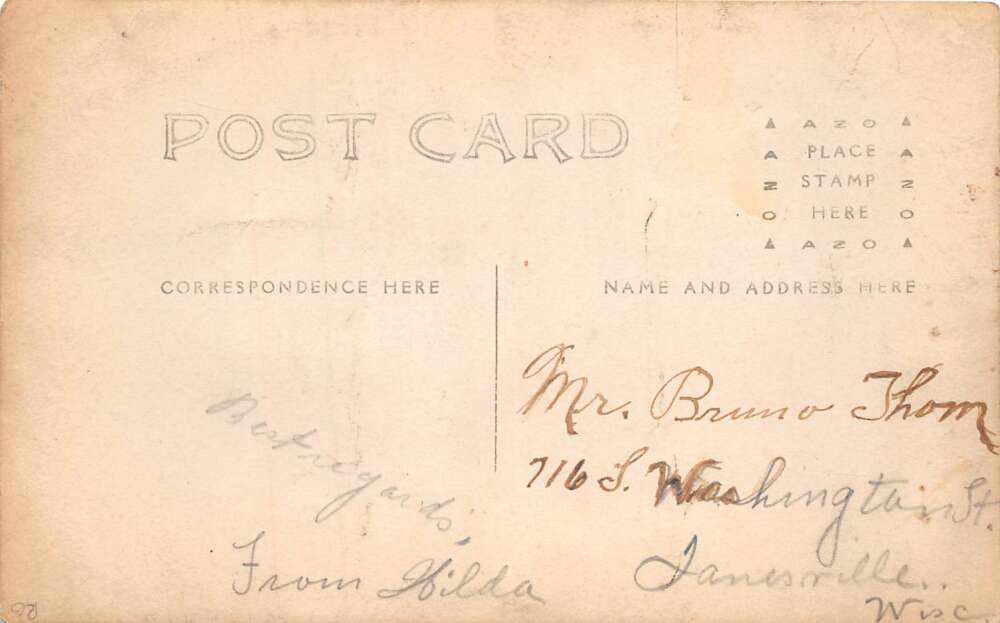 POST CARD
▲ AZO ▲
A PLACE A
Z STAMP Z
O HERE O
▲ AZO ▲
CORRESPONDENCE HERE
NAME AND ADDRESS HERE
Best regards,
From Hilda
Mr. Bruno Thom
716 S. Washington St.
Janesville.
Wisc.